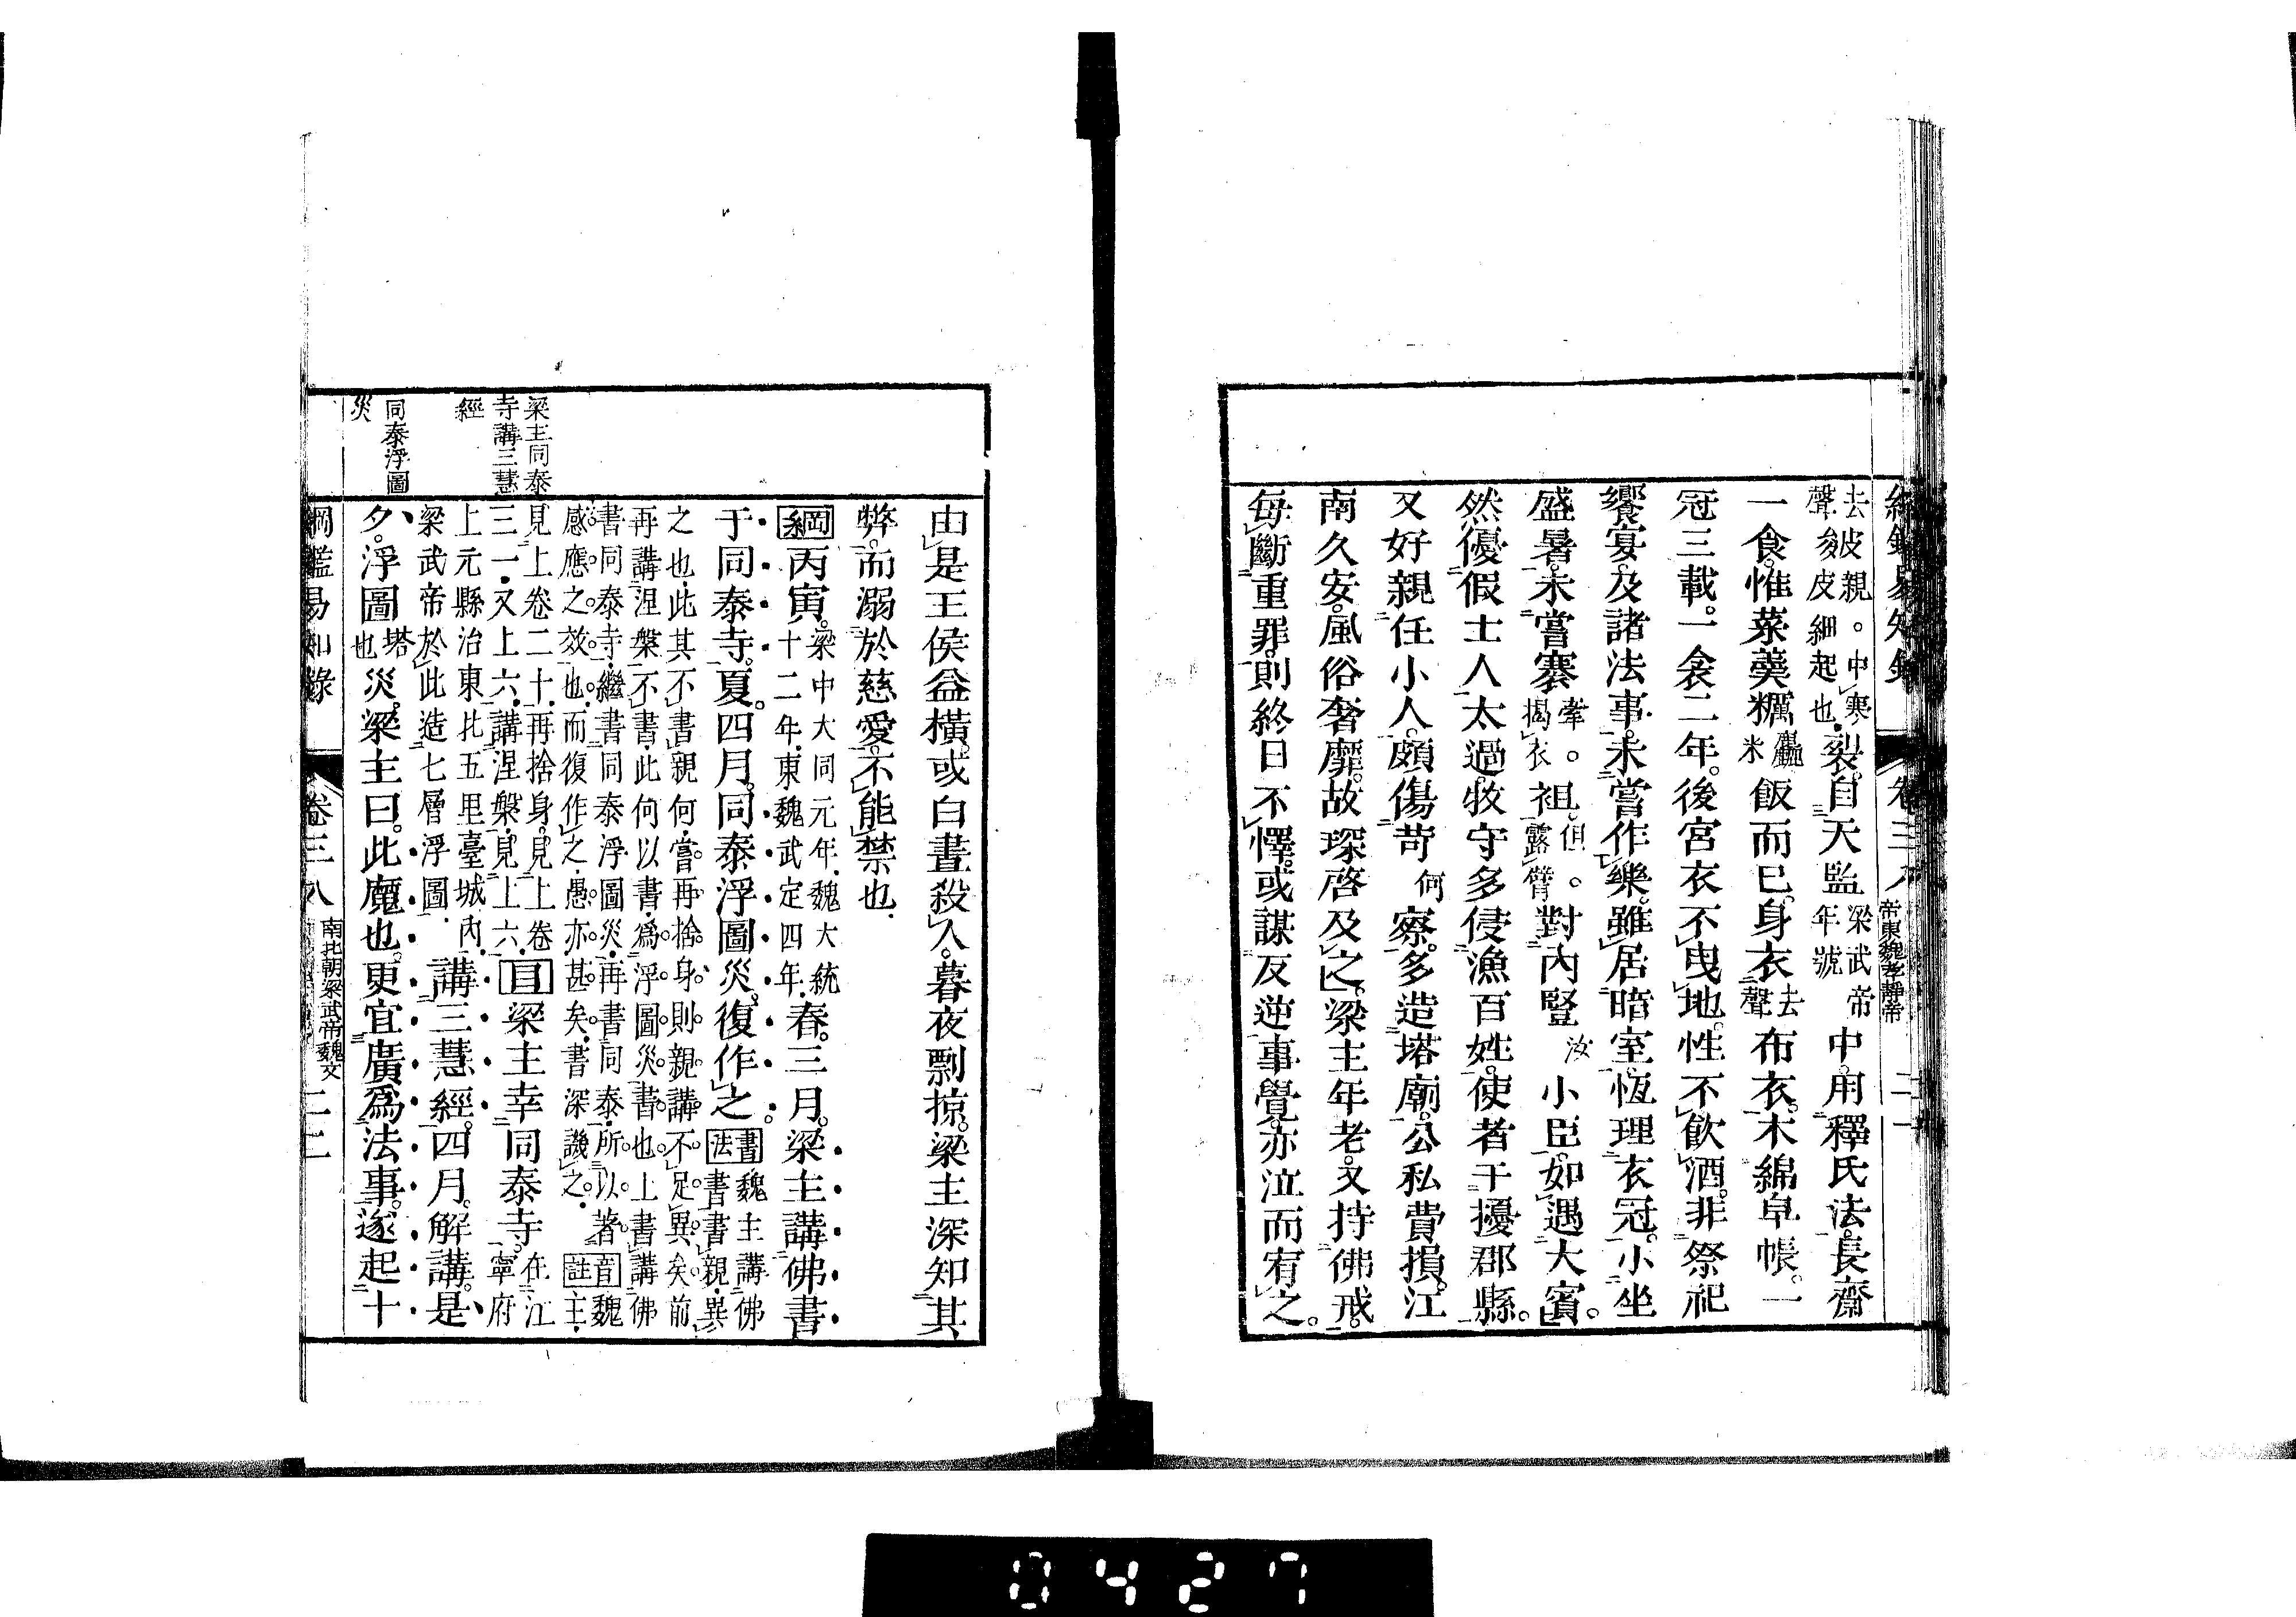 去皮親。中寒
聲皴皮細起也裂。自天監梁武帝年號中。用釋氏法。長齋
一食。惟菜羹糲麤米飯而已。身衣去聲布衣。木綿皁帳。一
冠三載。一衾二年。後宮衣不曳地。性不飲酒。非祭祀
饗宴。及諸法事。未嘗作樂。雖居暗室。恆理衣冠。小坐
盛暑。未嘗褰搴。揭衣袒但。露臂。對內豎汝小臣。如遇大賓。
然優假士人太過。牧守多侵漁百姓。使者干擾郡縣。
又好親任小人。頗傷苛何察。多造塔廟。公私費損。江
南久安。風俗奢靡。故琛啓及之。梁主年老。又持佛戒。
每斷重罪。則終日不懌。或謀反逆事覺。亦泣而宥之。
帝東魏孝靜帝
由是王侯益橫。或白晝殺人。暮夜剽掠。梁主深知其
弊。而溺於慈愛。不能禁也。
綱丙寅。梁中大同元年。魏大統十二年。東魏武定四年。春。三月。梁主講佛書
于同泰寺。夏。四月。同泰浮圖災。復作之。書法魏主講佛書書親。異
之也。此其不書親何。嘗再捨身。則親講不足異矣。前
再講涅槃不書。此何以書。爲浮圖災書也。上書講佛
書同泰寺。繼書同泰浮圖災。再書同泰。所以著
感應之效也。而復作之。愚亦甚矣。書深譏之。音註魏主。
見上卷二十。再捨身。見上卷
三一。又上六。講涅槃。見上六。目梁主幸同泰寺。在江寧府
上元縣治東北五里臺城內。
梁武帝於此造七層浮圖。講三慧經。四月。解講。是
夕。浮圖塔也災。梁主曰。此魔也。更宜廣爲法事。遂起十
梁主同泰
寺講三慧
經
同泰浮圖
災
綱鑑易知錄 卷三八 南北朝梁武帝魏文 二二